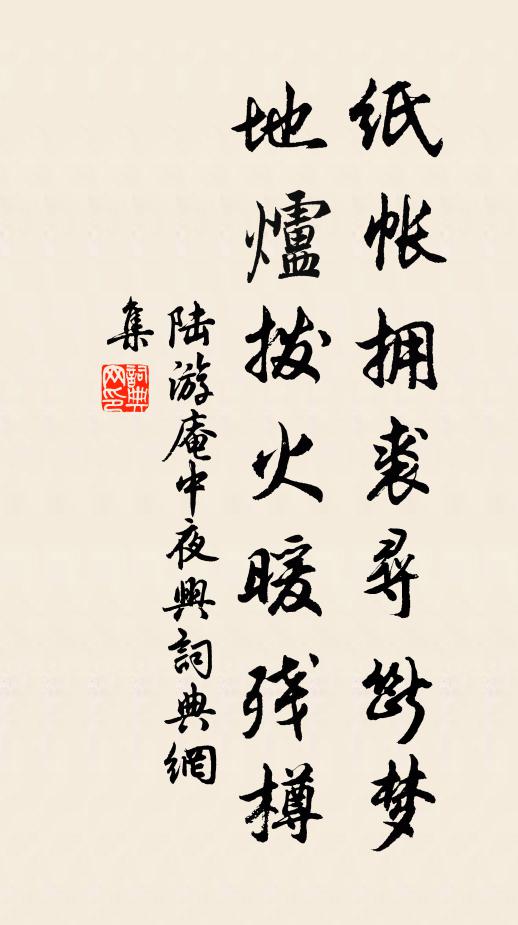 纸帐拥裘寻断梦
地爐拨火暖残樽
陆游庵中夜興詞典網
集
詞典网印